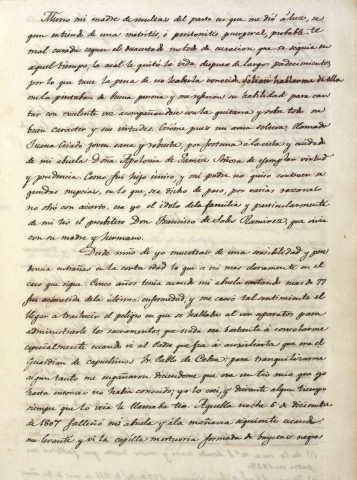 Murio mi madre de resultas del parto en que me dió á luz, se
gun entiendo de una metritis, ó peritonitis puerperal, probable.te
mal curada segun el descartado metodo de curacion que se seguia en
aquel tiempo, la cual le quitó la vida despues de largos padecimientos,
por lo que tuve la pena de no haberla conocido. Solian hablarme de ella
me la pintaban de buena persona y me referian su habilidad para can
tar con excelente voz acompañandose con la guitarra y sobre todo su
buen caracter y sus virtudes. Crióme pues un ama soltera, llamada
Juana Criada joven sana y robusta, por fortuna á la vista y cuidado
de mi abuela Doña Apolonia de Señora de ejemplar virtud
y prudencia. Como fui hijo unico, y mi padre no quiso contraer se
gundas nupcias, en lo que, sea dicho de paso, por varias razones
no obró con acierto, era yo el idolo de la familia y particularmente
de mi tio el presbitero Don Francisco de Sales Ramirez, que vivia
con su madre y hermano.
Desde niño di yo muestras de una sensibilidad y pru
dencia extrañas en la corta edad lo que se vió mas claramente en el
caso que sigue. Cinco años tenia cuando mi abuela contando mas de 77
fue acometida de la última enfermedad, y me causó tal sentimiento el
llegar á traslucir el peligro en que se hallaba al ver aparatos para
administrarle los sacramentos que nada era bastante á consolarme
especialmente cuando vi al Padre que fué á auxiliarla que era el
Guardian de capuchinos Fr. Pablo de para tranquilizarme
algun tanto me engañaron diciendome que era un tio mio que yo
hasta entonces no habia conocido; yo lo crei, y durante algun tiempo
siempre que lo veia le llamaba tio. Aquella noche 6 de diciembre
de 1807 falleció mi abuela y á la mañana siguiente cuando
me levanté y vi la capilla mortuoria formada de bayetas negras